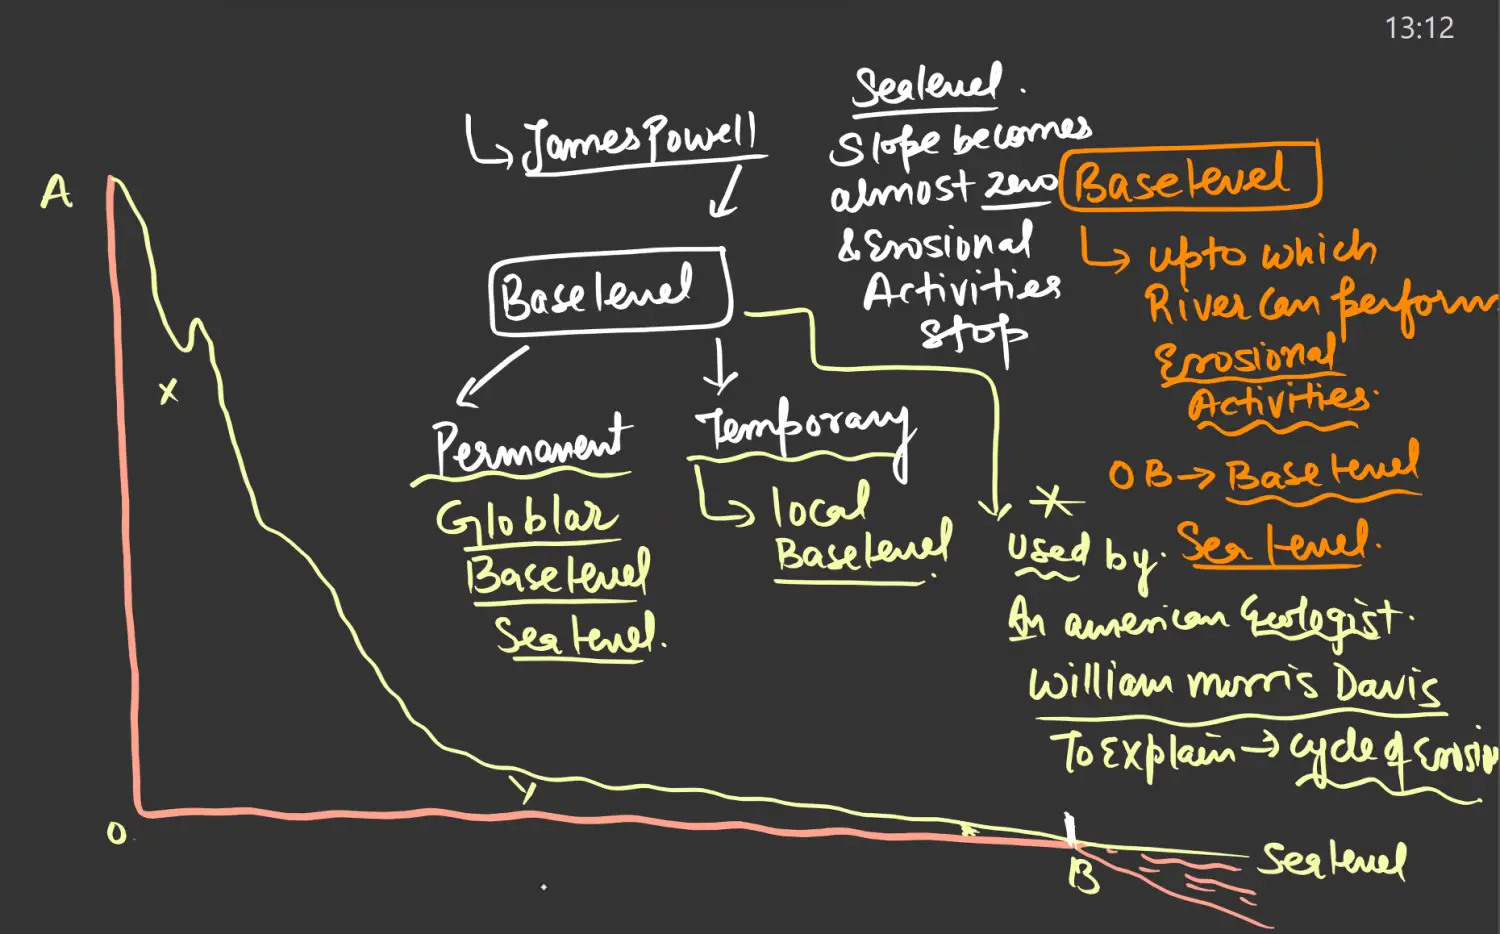 13:12
Sealevel.
Slope becomes
almost zero
& Erosional
Activities
Stop
↳ James Powell
Baselevel
Permanent
Globlar
Baselevel
Sealevel.
Temporary
↳ local
Baselevel.
Baselevel
↳ upto which
River can perform
Erosional
Activities.
OB → Baselevel
Sea level.
Used by.
An american Geologist.
William morris Davis
To Explain → cycle of Erosion
A
X
Y
O
B
Sea level